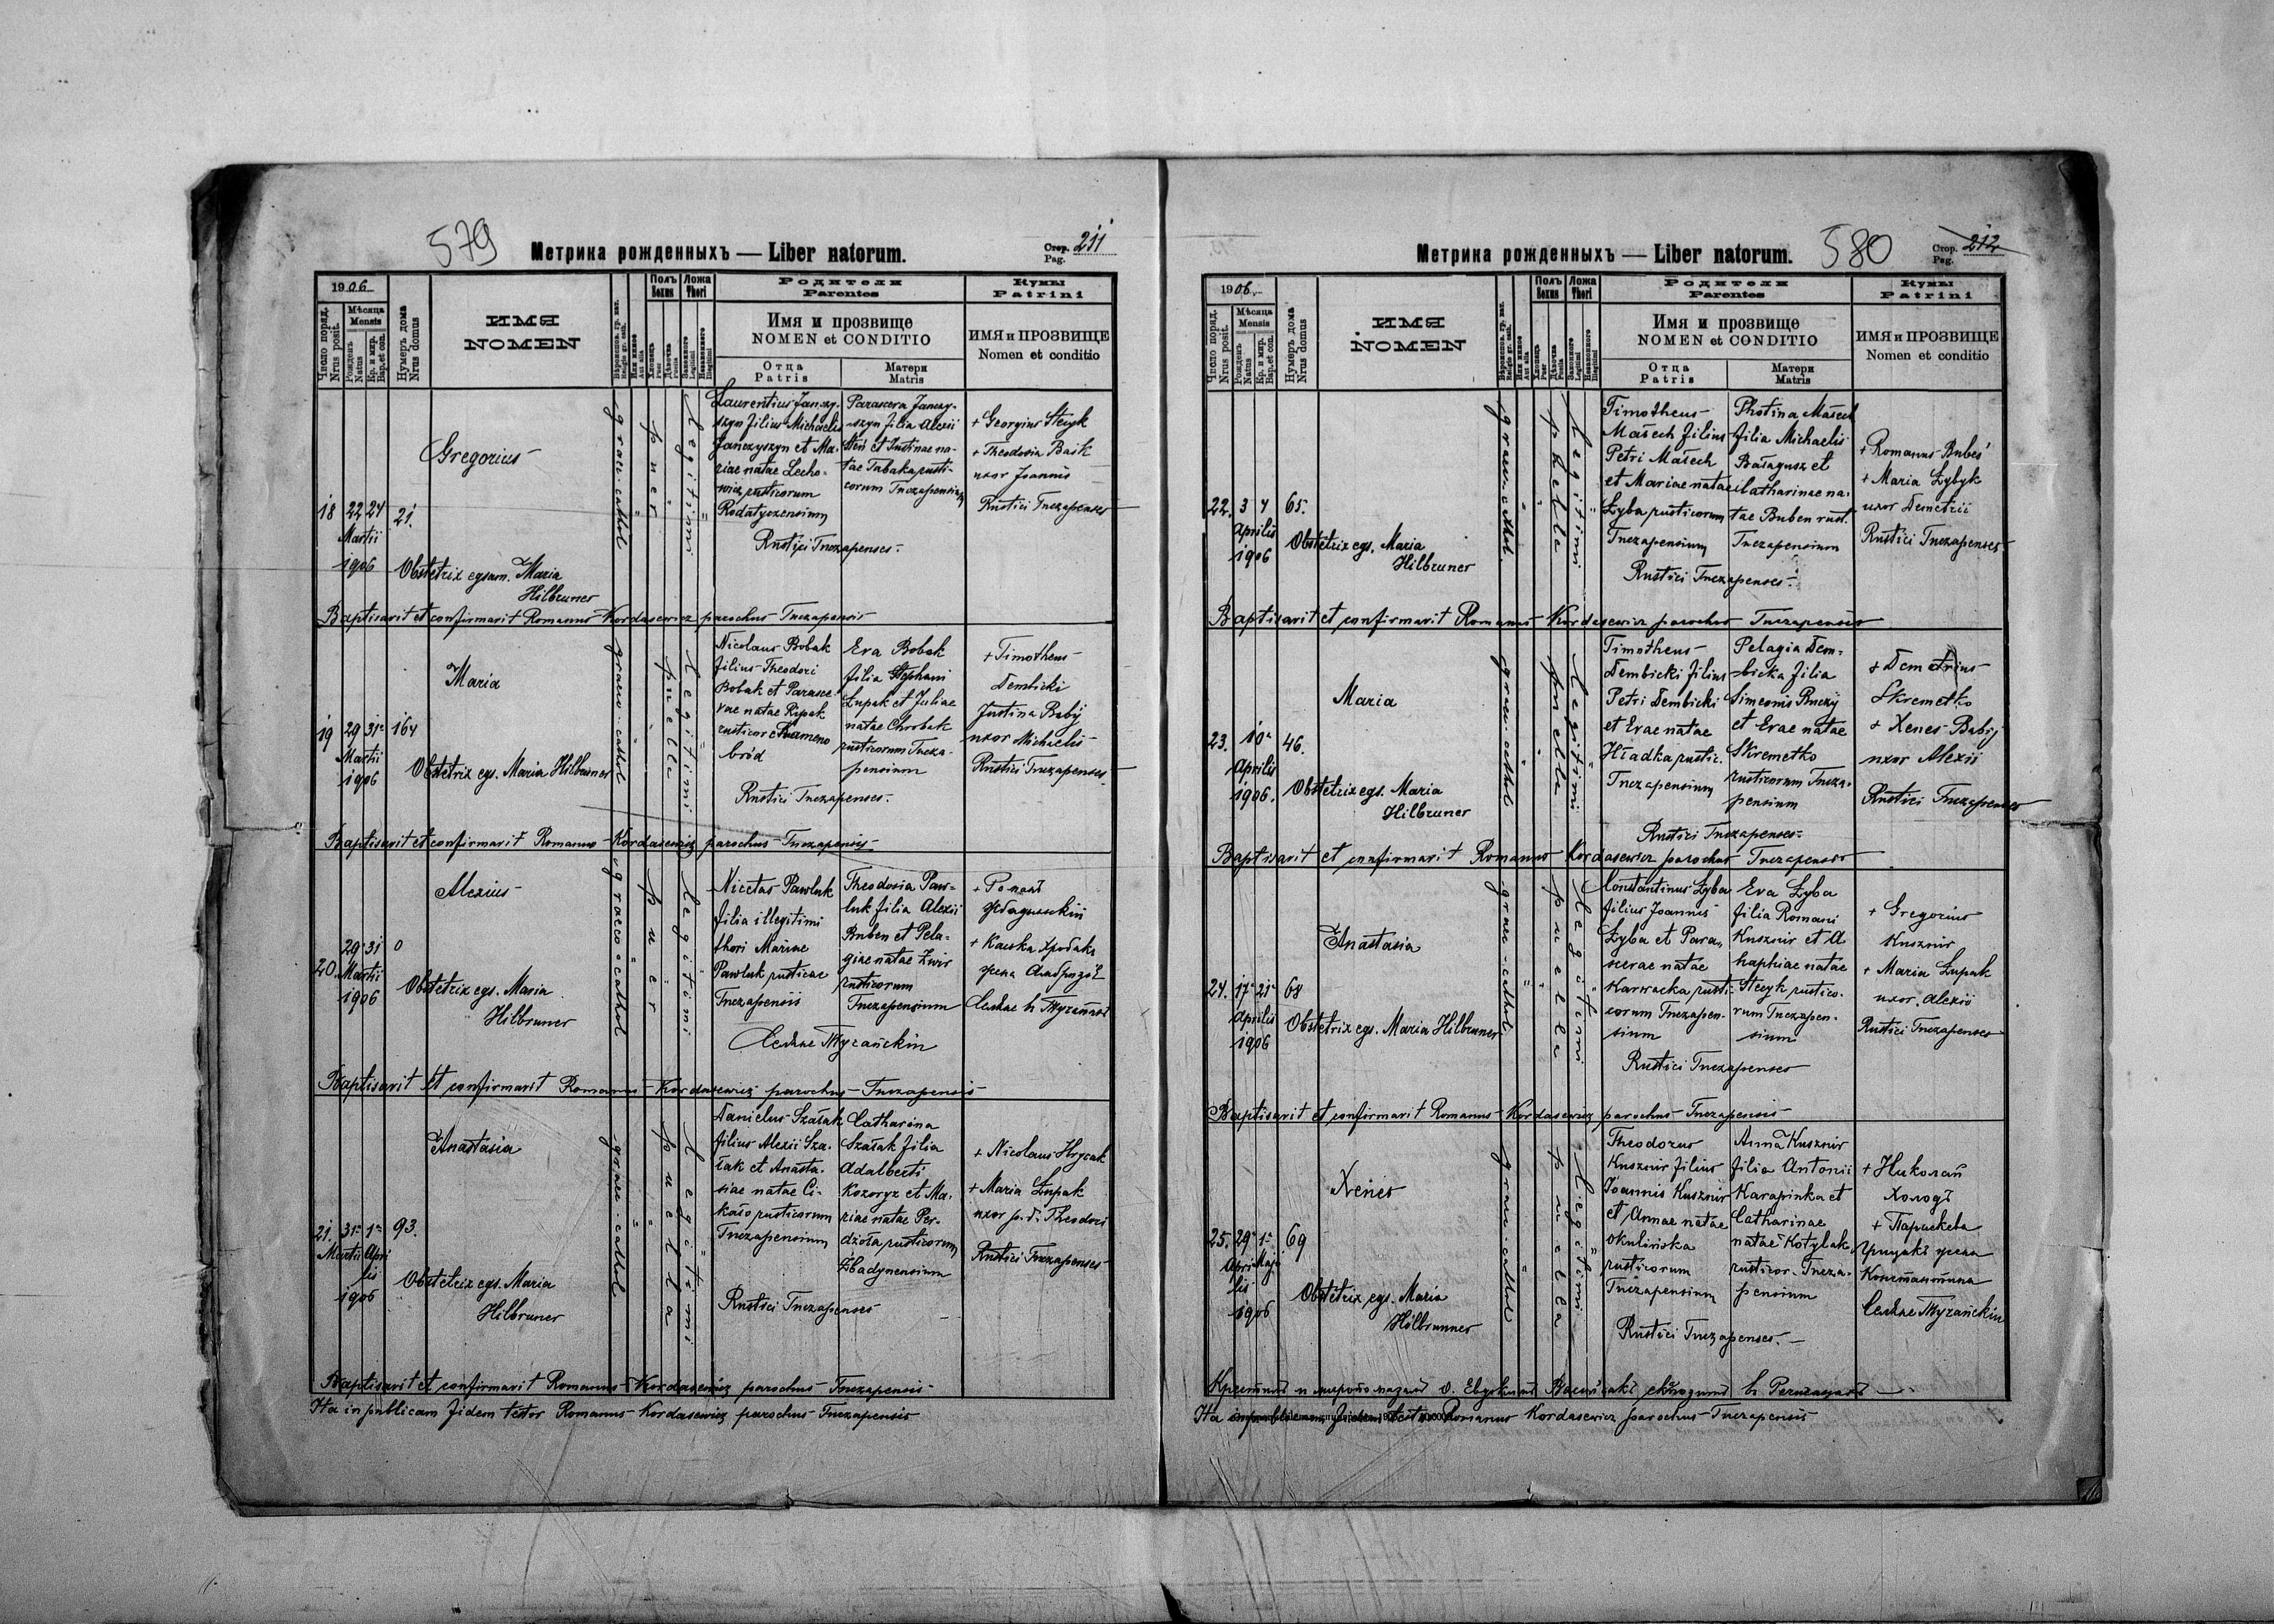 579
Метрика рожденныхъ — Liber natorum.
Стор. Pag. 211
1906
Число поряд. Nrus posit.
Мѣсяца Mensis
Рожденъ Natus
Кр. и мир. Bap. et con.
Нумеръ дома Nrus domus
ИМЯ
NOMEN
Полъ Sexus
Ложа Thori
Родители
Parentes
Имя и прозвище
NOMEN et CONDITIO
Отца
Patris
Матери
Matris
Кумы
Patrini
ИМЯ и ПРОЗВИЩЕ
Nomen et conditio
18 22 24 21.
Martii
1906
Gregorius
Obstetrix egsam. Maria
Hilbruner
graeco-cathol
puer
legitimi
Laurentius Janczy-
szyn filius Michaelis
Janczyszyn et Ma-
riae natae Lecho-
wicz rusticorum
Rodatyczensium
Parascera Janczy-
szyn filia Alexii
Steń et Justinae na-
tae Tabaka rusti-
corum Tuczapensium
Rustici Tuczapenses.
+ Georgius Stecyk
+ Theodosia Baik
uxor Joannis
Rustici Tuczapenses
Baptisavit et confirmavit Romanus Kordasewicz parochus Tuczapensis
19 29 31 164
Martii
1906
Maria
Obstetrix egs. Maria Hilbruner
graeco-cathol
puella
legitimi
Nicolaus Bobak
filius Theodori
Bobak et Parasce-
vae natae Rypak
rusticor e Kameno
bród
Eva Bobak
filia Stephani
Łupak et Juliae
natae Chrobak
rusticorum Tucza-
pensium
Rustici Tuczapenses.
+ Timotheus
Dembicki
Justina Babij
uxor Michaelis
Rustici Tuczapenses
Baptisavit et confirmavit Romanus Kordasewicz parochus Tuczapensis
20. 29 31 0
Martii
1906
Alexius
Obstetrix egs. Maria
Hilbruner
graeco-cathol
puer
legitimi
Nicetas Pawluk
filia illegitimi
thori Mariae
Pawluk rusticae
Tuczapensis
Theodosia Paw-
luk filia Alexii
Buben et Pela-
giae natae Żwir
rusticorum
Tuczapensium
Селяне Тучапскіи
+ Романъ
+ Каська Хробакъ
жена
Селяне
Baptisavit et confirmavit Romanus Kordasewicz parochus Tuczapensis
21. 31 1 93.
Martii Apri
lis
1906
Anastasia
Obstetrix egs. Maria
Hilbruner
graec-cathol
puella
legitimi
Daniclus Szałak
filius Alexii Sza-
łak et Anasta-
siae natae Ci-
kało rusticorum
Tuczapensium
Catharina
Szałak filia
Adalberti
Kozoryz et Ma-
riae natae Per-
dżoła rusticorum
Zbadynensium
Rustici Tuczapenses
+ Nicolaus Hrycak
+ Maria Łupak
uxor p.d. Theodori
Rustici Tuczapenses
Baptisavit et confirmavit Romanus Kordasewicz parochus Tuczapensis
Ita in publicam fidem testor Romanus Kordasewicz parochus Tuczapensis
Метрика рожденныхъ — Liber natorum.
580
Стор. Pag. 212
1906
Число поряд. Nrus posit.
Мѣсяца Mensis
Рожденъ Natus
Кр. и мир. Bap. et con.
Нумеръ дома Nrus domus
ИМЯ
NOMEN
Полъ Sexus
Ложа Thori
Родители
Parentes
Имя и прозвище
NOMEN et CONDITIO
Отца
Patris
Матери
Matris
Кумы
Patrini
ИМЯ и ПРОЗВИЩЕ
Nomen et conditio
22. 3 4 65.
Aprilis
1906
Obstetrix egs. Maria
Hilbruner
graeco-cathol.
puella
legitimi
Timotheus
Małech filius
Petri Małech
et Mariae natae
Łyba rusticorum
Tuczapensium
Photina Małech
filia Michaelis
Bałagusz et
Catharinae na-
tae Buben rust.
Tuczapensium
Rustici Tuczapenses.
+ Romanus Bubeś
+ Maria Łybyk
uxor Demetrii
Rustici Tuczapenses
Baptisavit et confirmavit Romanus Kordasewicz parochus Tuczapensis
23. 10 46.
Aprilis
1906.
Maria
Obstetrix egs. Maria
Hilbruner
graec-cathol
puella
legitimi
Timotheus
Dembicki filius
Petri Dembicki
et Evae natae
Hładka rustic.
Tuczapensium
Pelagia Dem-
bicka filia
Simeonis Buczij
et Evae natae
Skremetko
rusticorum Tucza-
pensium
Rustici Tuczapenses
+ Demetrius
Skremetko
+ Xenes Babij
uxor Alexii
Rustici Tuczapenses
Baptisavit et confirmavit Romanus Kordasewicz parochus Tuczapensis
24. 17 21 68
Aprilis
1906
Anastasia
Obstetrix eg. Maria Hilbruner
graec-cathol
puella
legitimi
Constantinus Łyba
filius Joannis
Łyba et Para-
scevae natae
Karwacka rusti-
corum Tuczapen-
sium
Eva Łyba
filia Romani
Kusznir et A
haphiae natae
Stecyk rustico-
rum Tuczapen-
sium
Rustici Tuczapenses
+ Gregorius
Kusznir
+ Maria Łupak
uxor Alexii
Rustici Tuczapenses
Baptisavit et confirmavit Romanus Kordasewicz parochus Tuczapensis
25. 29 1 69
Apri Maji
lis
1906
Xenes
Obstetrix egs. Maria
Hilbrunner
graec-cathol
puella
legitimi
Theodorus
Kusznir filius
Joannis Kusznir
et Annae natae
Okulińska
rusticorum
Tuczapensium
Anna Kusznir
filia Antonii
Karapinka et
Catharinae
natae Kotylak
rusticor. Tucza-
pensium
Rustici Tuczapenses.
+ Николай
Холодъ
+ Параскева
Грицакъ жена
Константина
Селяне Тучапскіи
Крестилъ и миропомазалъ о. Василь
Ita Romanus Kordasewicz parochus Tuczapensis